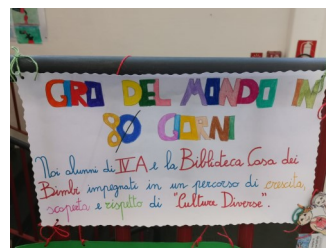 GIRO DEL MONDO IN
80 GIORNI
Noi alunni di IV A e la Biblioteca Casa dei
Bimbi impegnati in un percorso di crescita,
scoperta e rispetto di "Culture Diverse".